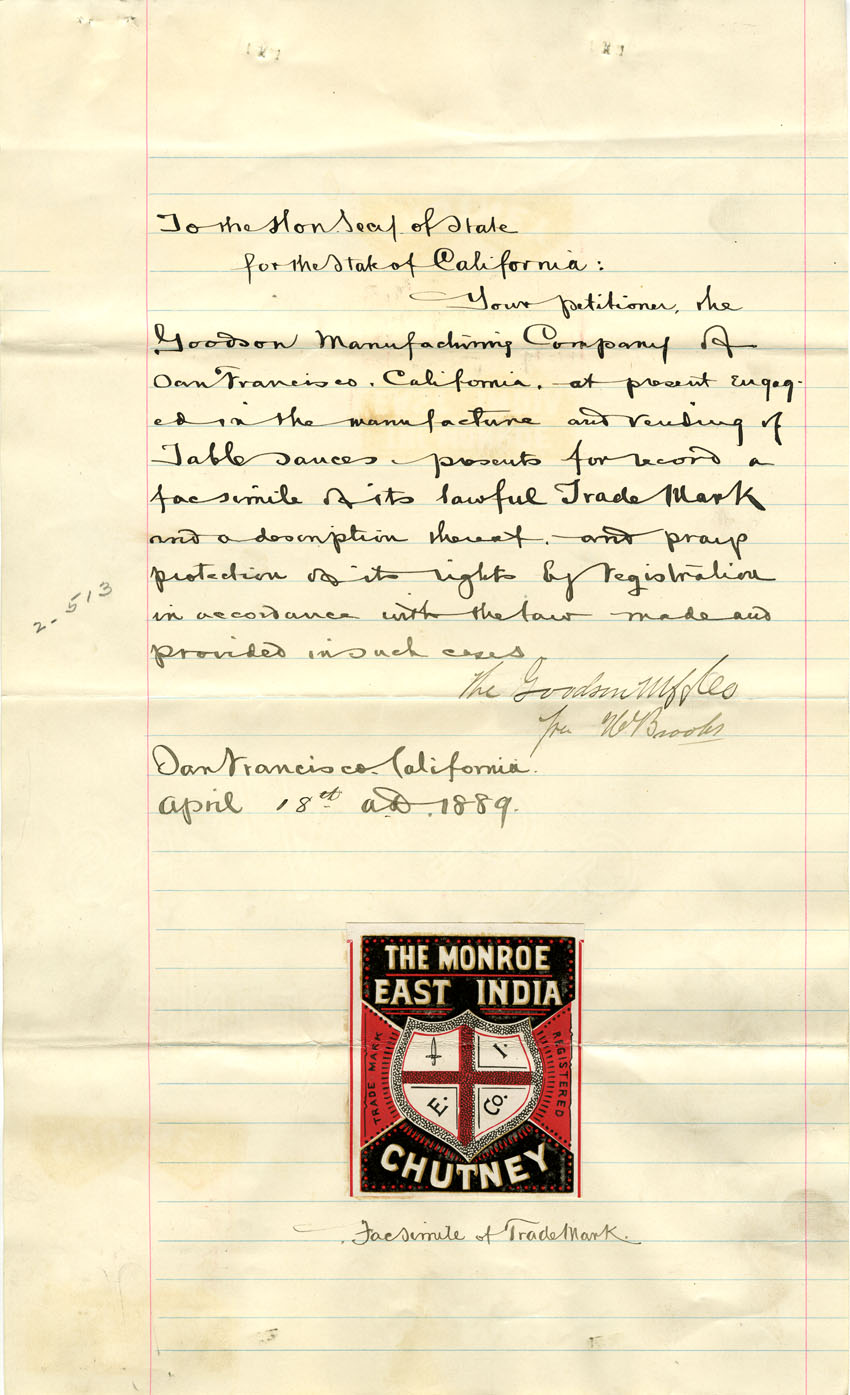 To the Hon. Secy. of State
for the State of California:
Your petitioner, the
Goodson Manufacturing Company of
San Francisco, California, at present engag-
ed in the manufacture and vending of
Table Sauces, presents for record a
facsimile of its lawful Trade Mark
and a description thereof, and prays
protection of its rights by registration
in accordance with the law made and
provided in such cases
2-513
The Goodson Mfg Co
per Brooks
San Francisco. California.
April 18th A.D. 1889.
THE MONROE
EAST INDIA
TRADE MARK
I.
E.
Co.
REGISTERED
CHUTNEY
Facsimile of Trade Mark.